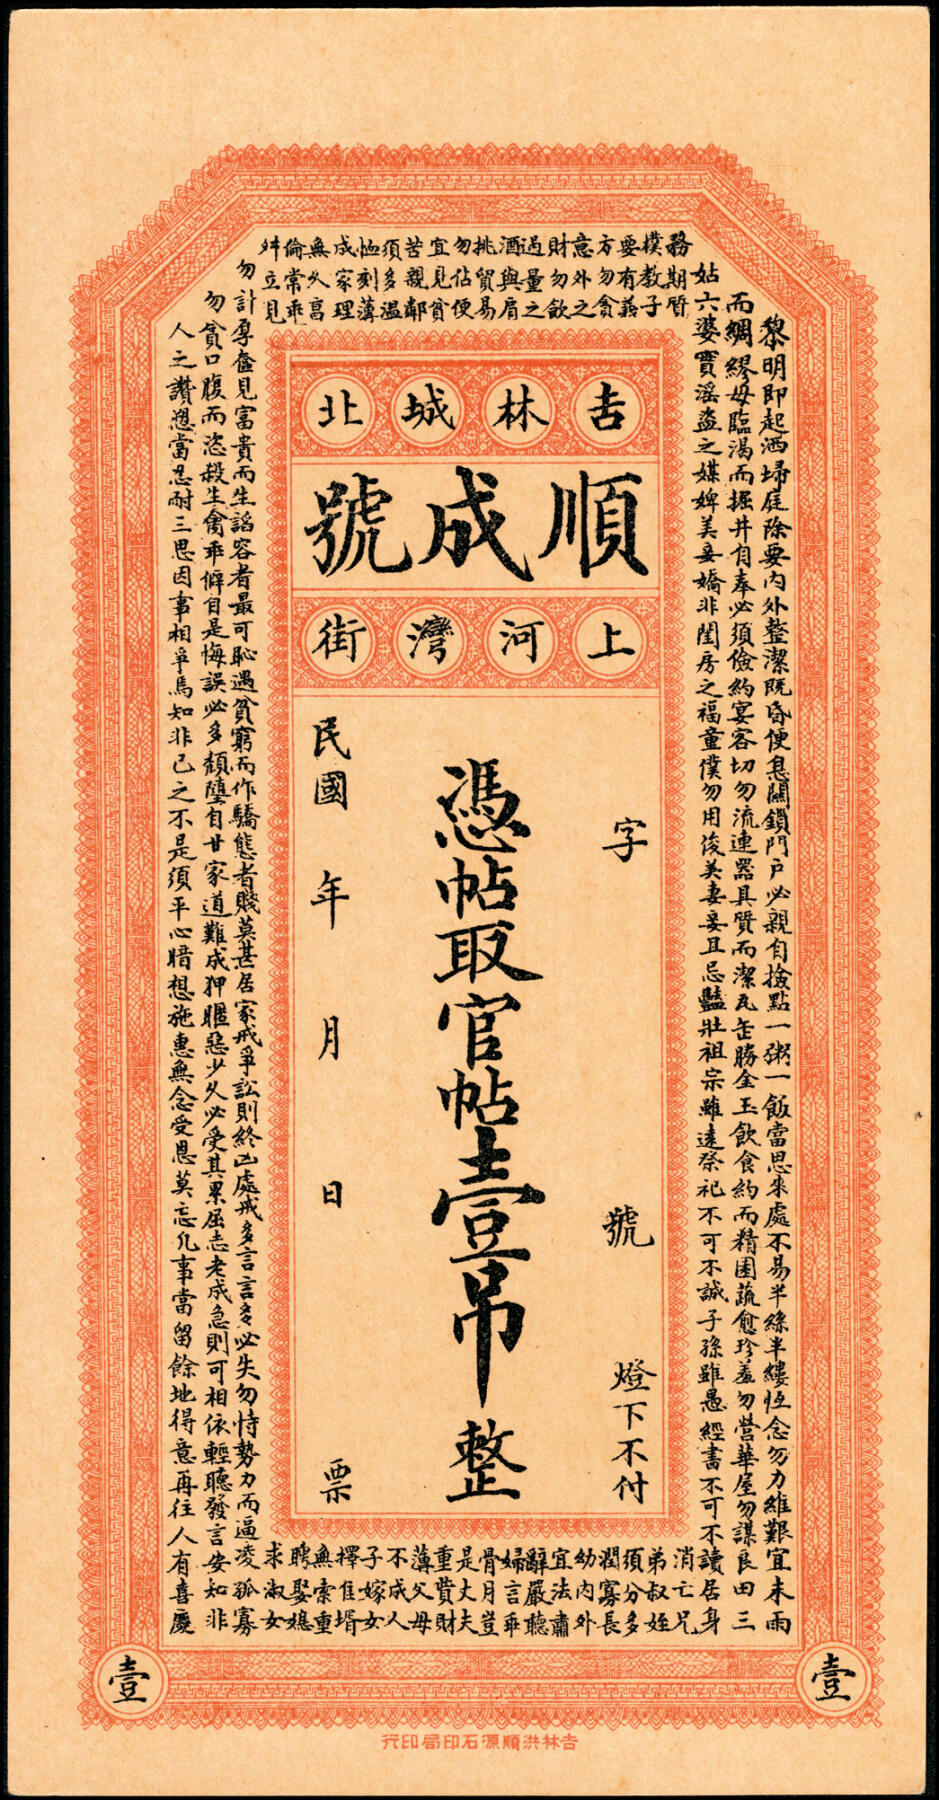 吉林城北
順成號
上河灣街
字 號 燈下不付
憑帖取官帖壹吊整
民國 年 月 日 票
黎明即起洒埽庭除要內外整潔既昏便息關鎖門戶必親自撿點一粥一飯當思來處不易半絲半縷恆念勿力維艱宜未雨
而綢繆毋臨渴而掘井自奉必須儉約宴客切勿流連器具質而潔瓦缶勝金玉飲食約而精園蔬愈珍羞勿營華屋勿謀良田三
姑六婆實滛盜之媒婢美妾嬌非閨房之福童僕勿用俊美妻妾且忌豔壯祖宗雖遠祭祀不可不誠子孫雖愚經書不可不讀居身
務期質
樸教子
要有義
方勿貪
意外之
財勿飲
過量之
酒與肩
挑貿易
勿佔便
宜見貧
苦親鄰
須多溫
恤刻薄
成家理
無久享
倫常乖
舛立見
消亡兄
弟叔姪
須分多
潤寡長
幼內外
宜法肅
辭嚴聽
婦言乖
骨月豈
是丈夫
重貲財
薄父母
不成人
子嫁女
擇佳壻
無索重
聘娶媳
求淑女
勿計厚奩見富貴而生諂容者最可恥遇貧窮而作驕態者賤莫甚居家戒爭訟則終凶處戒多言言多必失勿恃勢力而逼凌孤寡
勿貪口腹而恣殺生禽乖僻自是悔誤必多頹墮自甘家道難成狎暱惡少久必受其累屈志老成急則可相依輕聽發言安知非
人之讚愬當忍耐三思因事相爭焉知非己之不是須平心暗想施惠無念受恩莫忘凡事當留餘地得意再往人有喜慶
壹
壹
吉林洪順源石印局印行